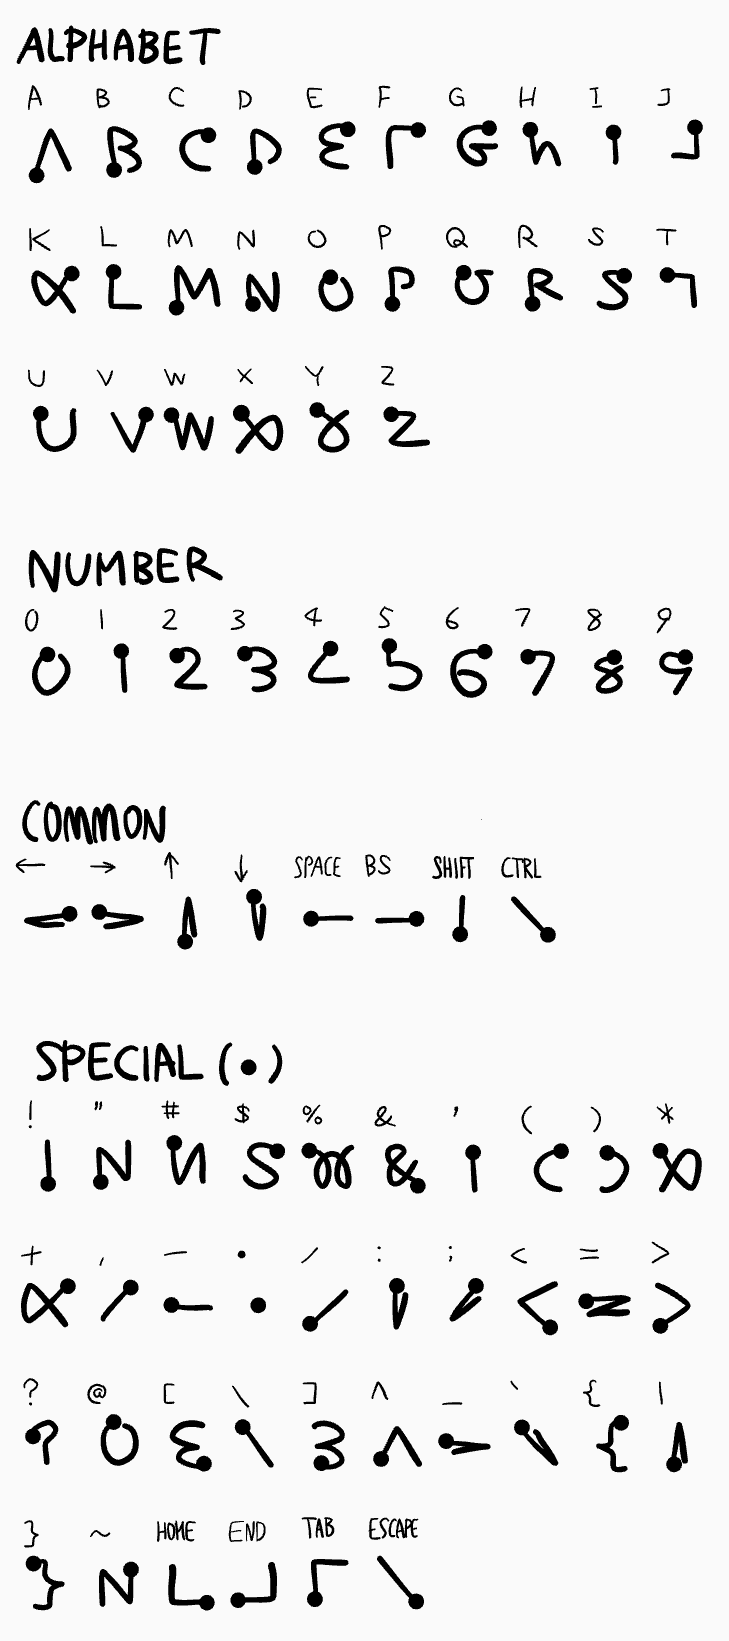 ALPHABET
A B C D E F G H I J
K L M N O P Q R S T
U V W X Y Z
NUMBER
0 1 2 3 4 5 6 7 8 9
COMMON
← → ↑ ↓ SPACE BS SHIFT CTRL
SPECIAL (•)
! " # $ % & ' ( ) *
+ , - • / : ; < = >
? @ [ \ ] ^ _ ` { |
} ~ HOME END TAB ESCAPE